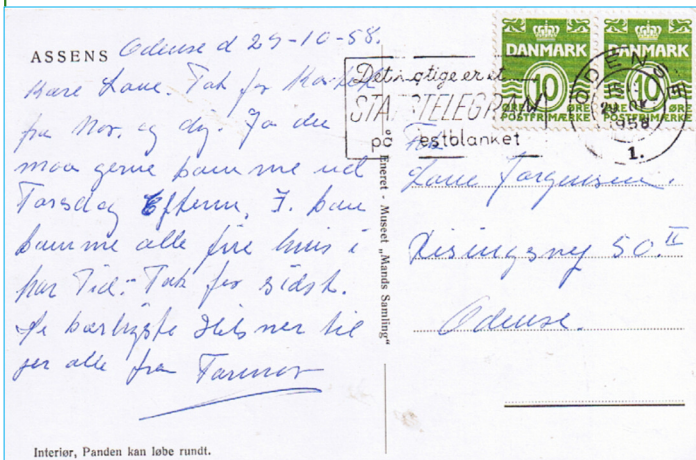 ASSENS
Odense d 29-10-58.
Kære Lone. Tak for Kortet
fra Mor. og dig. Ja du
maa gerne komme ud
Torsdag Efterm, I kan
komme alle fire hvis i
har Tid. Tak for sidst.
De kærligste Hilsner til
jer alle fra Farmor
Interiør, Panden kan løbe rundt.
Eneret - Museet „Mands Samling"
DANMARK
10
ØRE ØRE
POSTFRIMÆRKE
DANMARK
10
ØRE ØRE
POSTFRIMÆRKE
Det rigtige er et
STADSTELEGRAM
på festblanket
ODENSE
1958
1.
Lone Jørgensen.
Risingsvej 50. II
Odense.